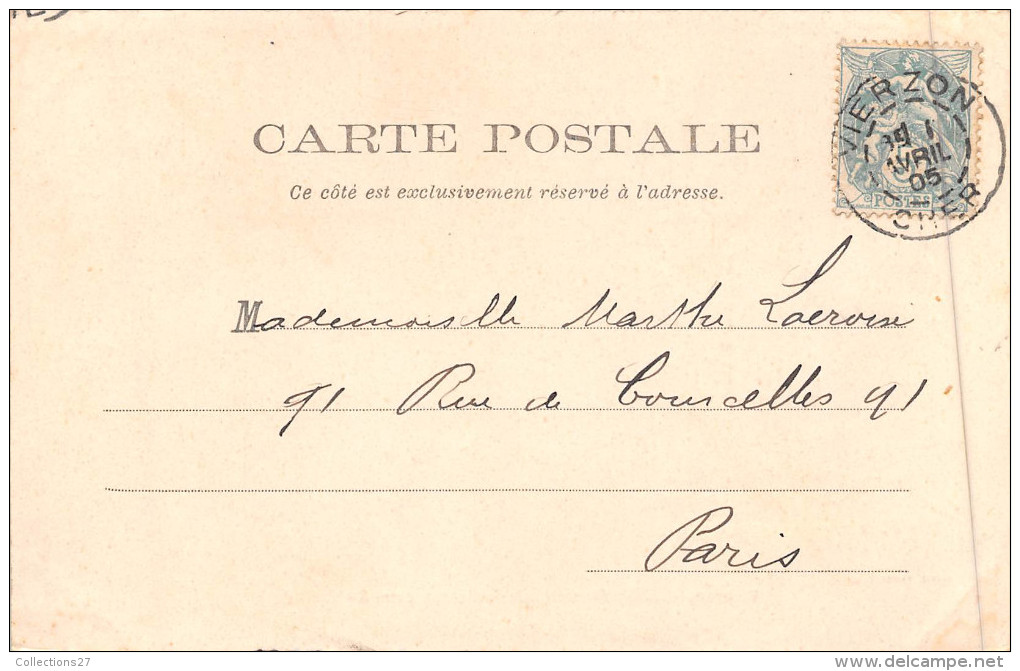 VIERZON
AVRIL
05
CHER
POSTES
CARTE POSTALE
Ce côté est exclusivement réservé à l'adresse.
Mademoiselle Marthe Lacroix
91 Rue de Courcelles 91
Paris
Collections27
www.delcampe.net